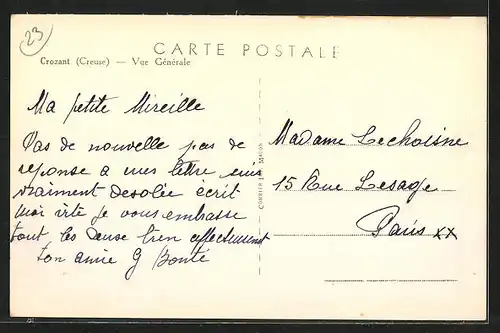 23
CARTE POSTALE
Crozant (Creuse) — Vue Générale
Ma petite Mireille
Pas de nouvelle pas de
reponse a mes lettre suis
vraiment desolée écrit
moi vite je vous embrasse
tout les deuse bien affectement
ton amie G Bonté
COMBIER MACON
Madame Lechoisne
15 Rue Lesage
Paris XX